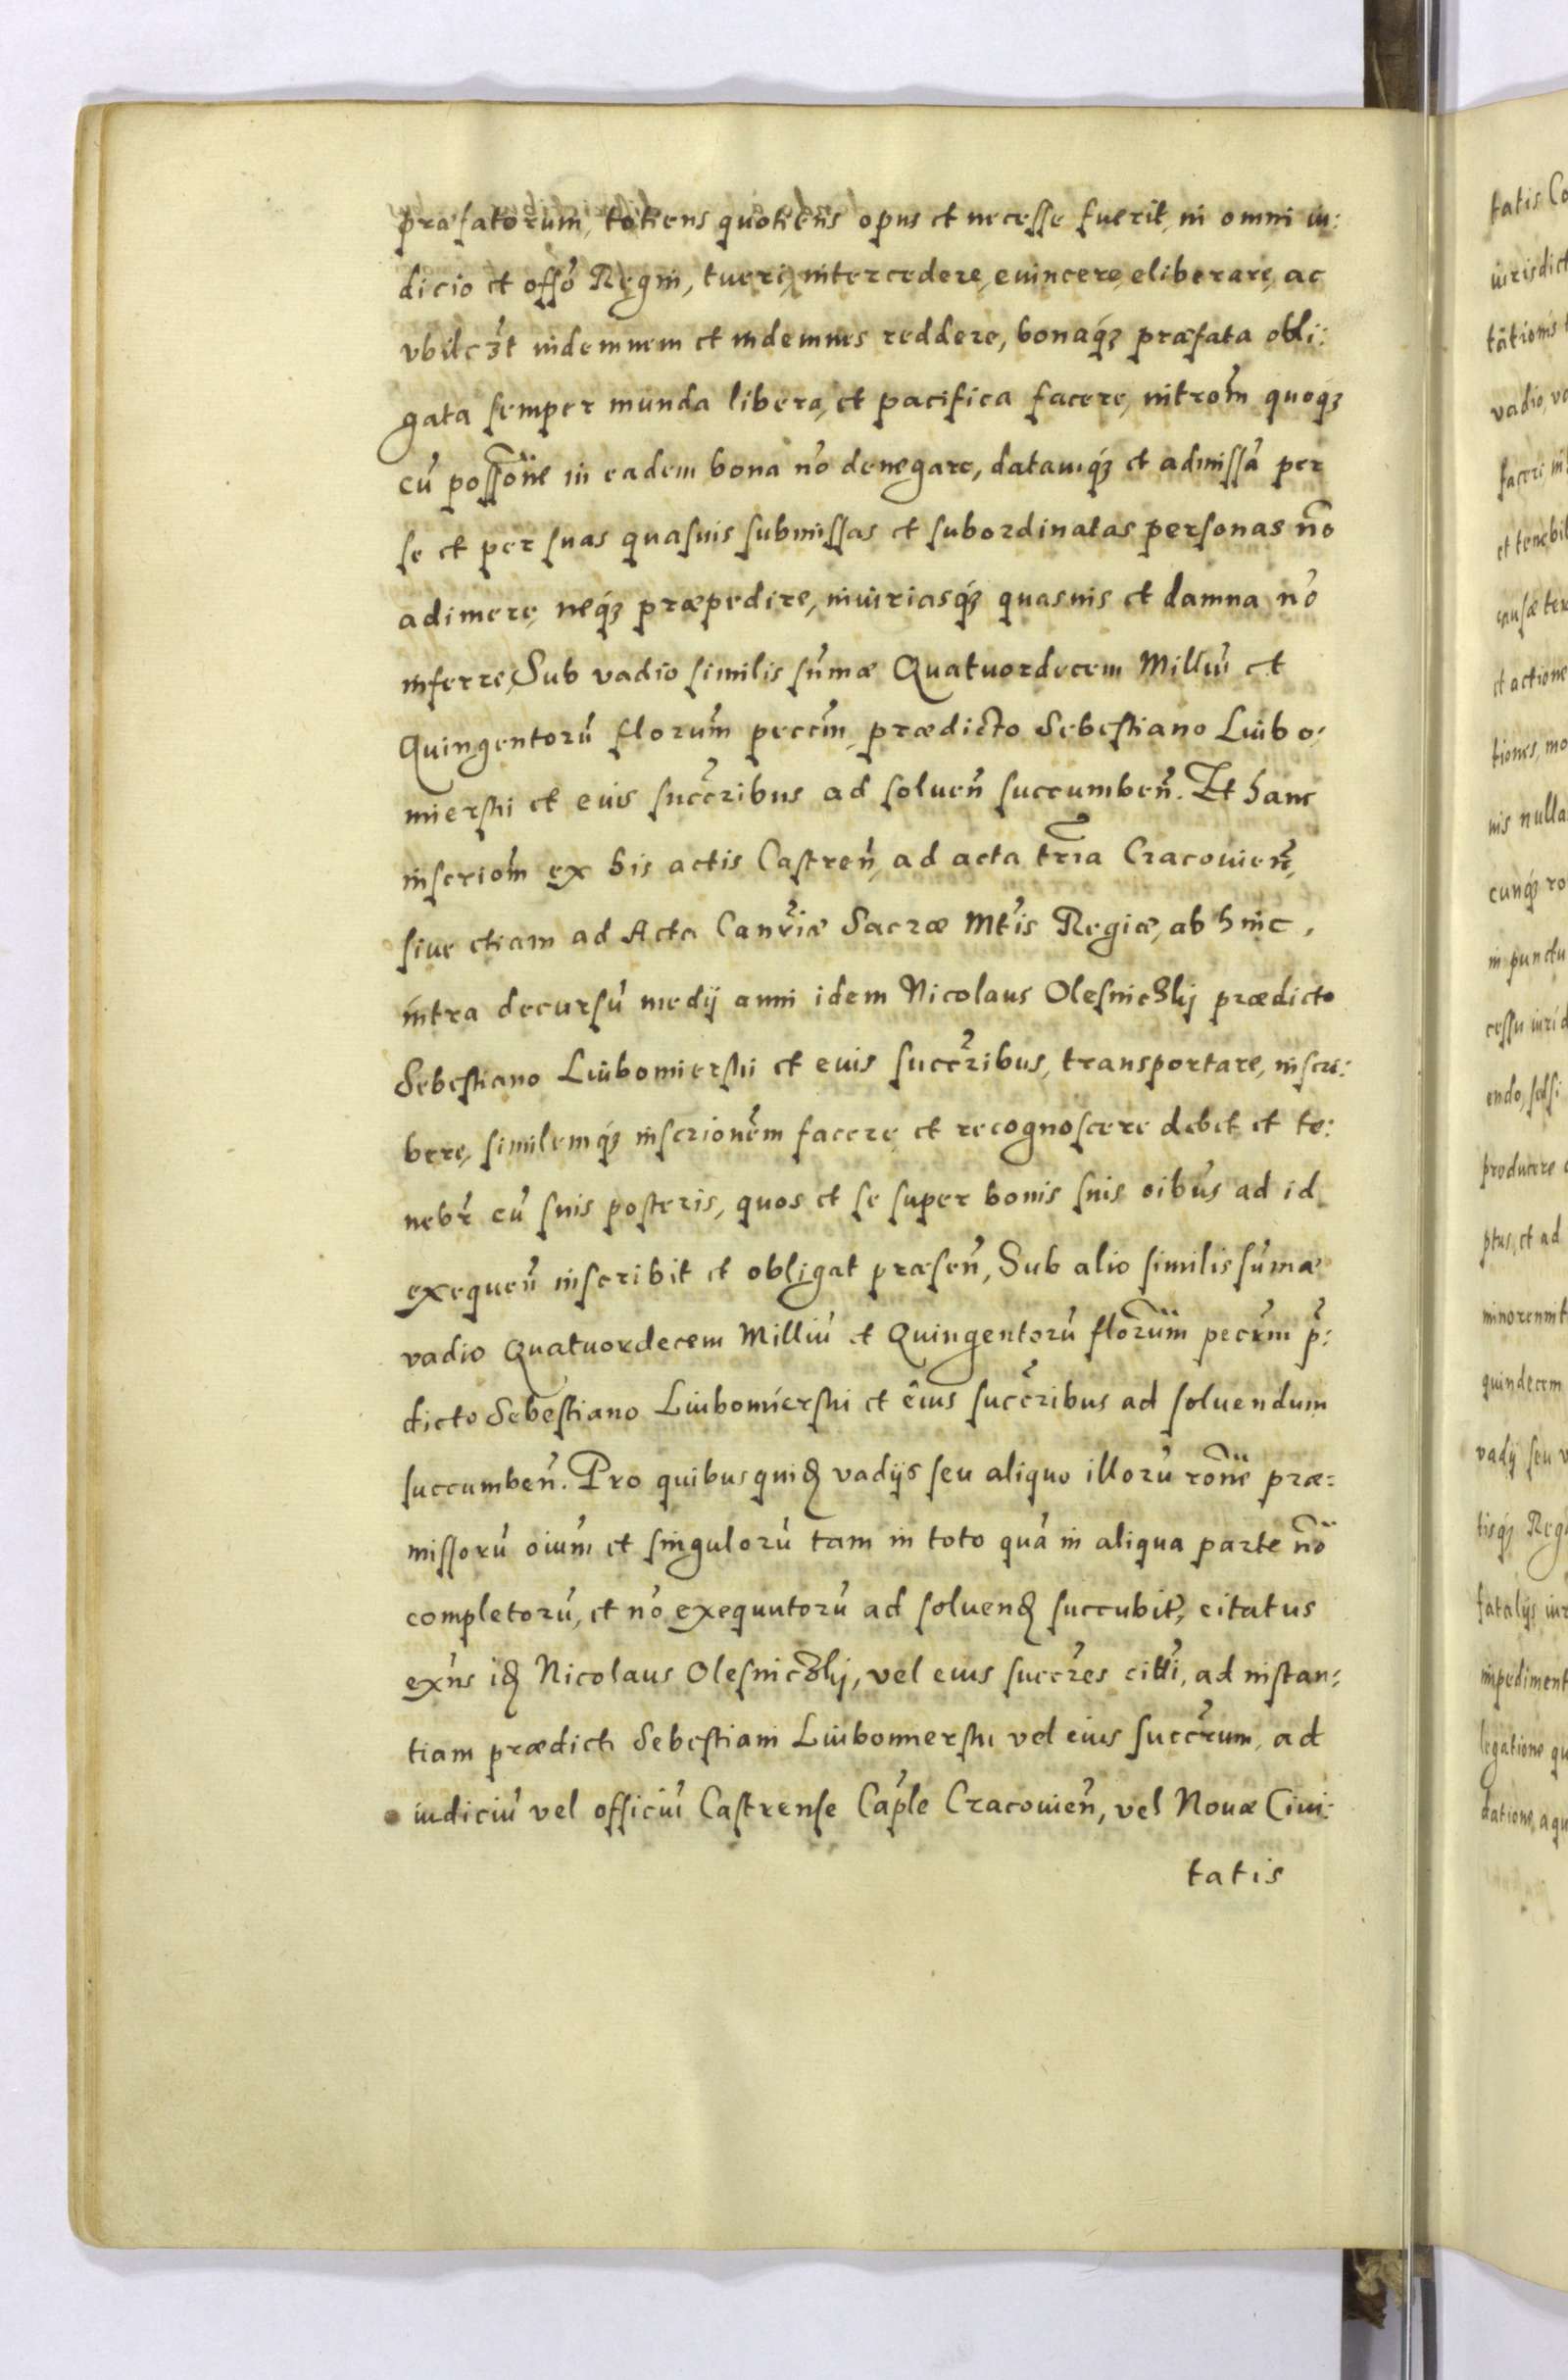 præfatorum, totiens quotiens opus et necesse fuerit, in omni iu:
dicio et offo Regni, tueri, intercedere, euincere, eliberare, ac
vbilczt indemnem et indemnes reddere, bonaqz præfata obli:
gata semper munda libera, et pacifica facere, intrōm quoqz
cū possōne in eadem bona nō denegare, datamqz et admissā per
se et per suas quasuis submissas et subordinatas personas nō
adimere, neqz præpedire, iniuriasqz quasuis et damna nō
inferre, Sub vadio similis sūmæ Quatuordecem Milliū et
Quingentorū florum peccīm, prædicto Sebestiano Lubo:
mierski et euis succribus ad soluen̄ succumben̄. Et hanc
inscriōm ex his actis Castren̄, ad acta trria Cracouien̄,
siue etiam ad Acta Canrīæ Sacræ Mt̄is Regiæ, ab hinc,
intra decursū medij anni idem Nicolaus Olesniczkj prædicto
Sebestiano Lubomierski et euis succribus, transportare, inscri:
bere, similemqz inscrionēm facere et recognoscere debet et te:
nebr̄ cū suis posteris, quos et se super bonis suis oibūs ad id
exequen̄ inscribit et obligat præsen̄, Sub alio similis sūmæ
vadio Quatuordecem Milliū et Quingentorū florum pecrīm p̄:
dicto Sebestiano Lubomierski et eius succribus ad soluendum
succumben̄. Pro quibus quid vadijs seu aliquo illorū rōne præ:
missorū oium̄ et singulorū tam in toto quā in aliqua parte nō
completorū, et nō exequutorū ad soluend succubit̄, citatus
exn̄s id Nicolaus Olesniczkj, vel eius succres citti, ad instan:
tiam prædicti Sebestiani Lubomierski vel eius succrum, ad
iudiciū vel officiū Castrense Cāple Cracouien̄, vel Nouæ Ciui:
tatis